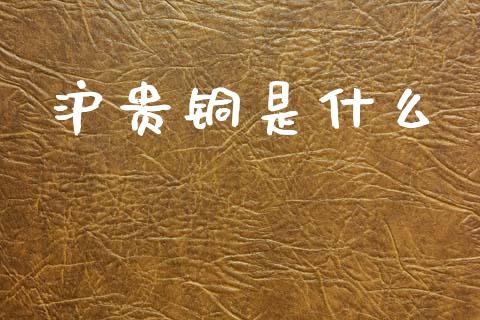 沪贵铜是什么